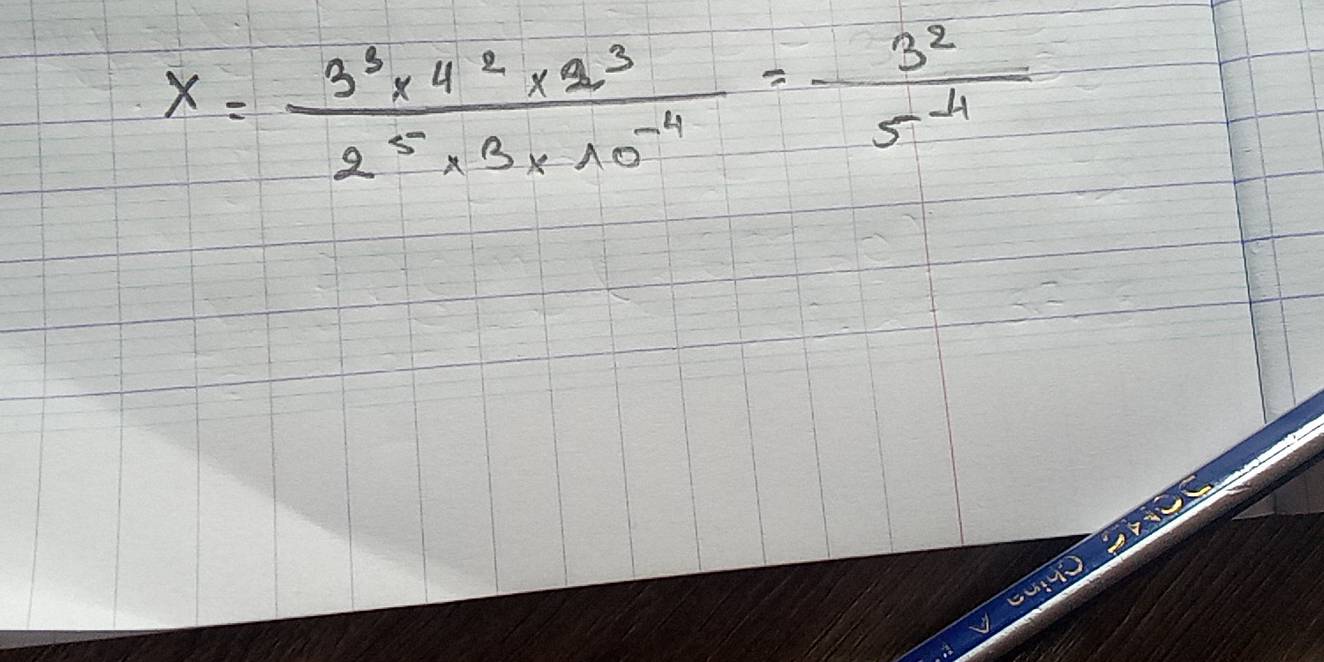 X = \frac{3^3 \times 4^2 \times 2^3}{2^5 \times 3 \times 10^{-4}} = \frac{3^2}{5^{-4}}
China A